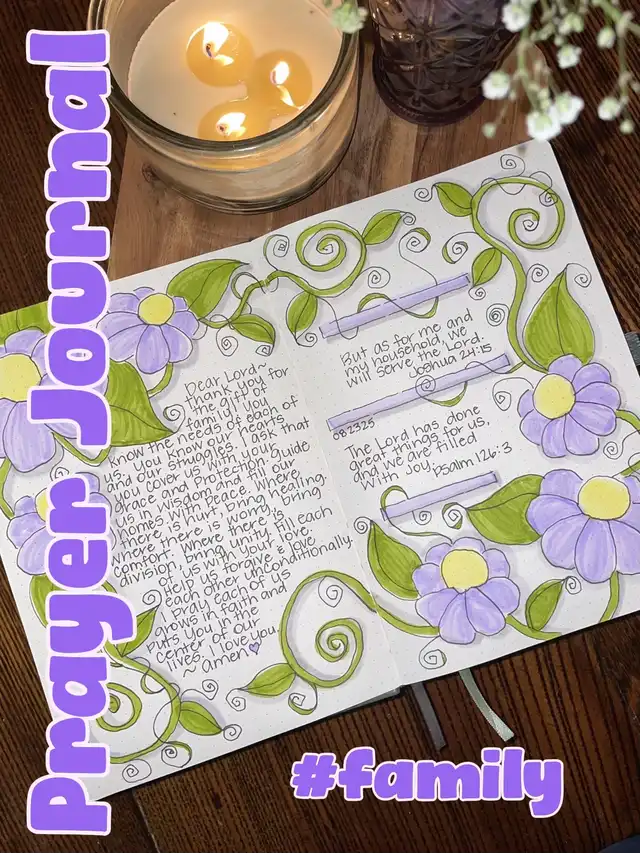 Prayer Journal
Dear Lord~
thank you for
the gift of
family! You
know the needs of each of
us. You know our hearts
and our struggles. I ask that
you cover us with your
grace and protection. Guide
us in wisdom and fill our
homes with peace. Where
there is hurt, bring healing
where there is worry, bring
comfort. Where there is
division, bring unity. Fill each
of us with your love.
Help us forgive & love
each other unconditionally.
I pray each of us
grows in faith and
puts you in the
center of our
lives. I love you.
~ amen
But as for me and
my household, we
will serve the Lord.
Joshua 24:15
082325
The Lord has done
great things for us,
and we are filled
with joy. Psalm 126:3
#family